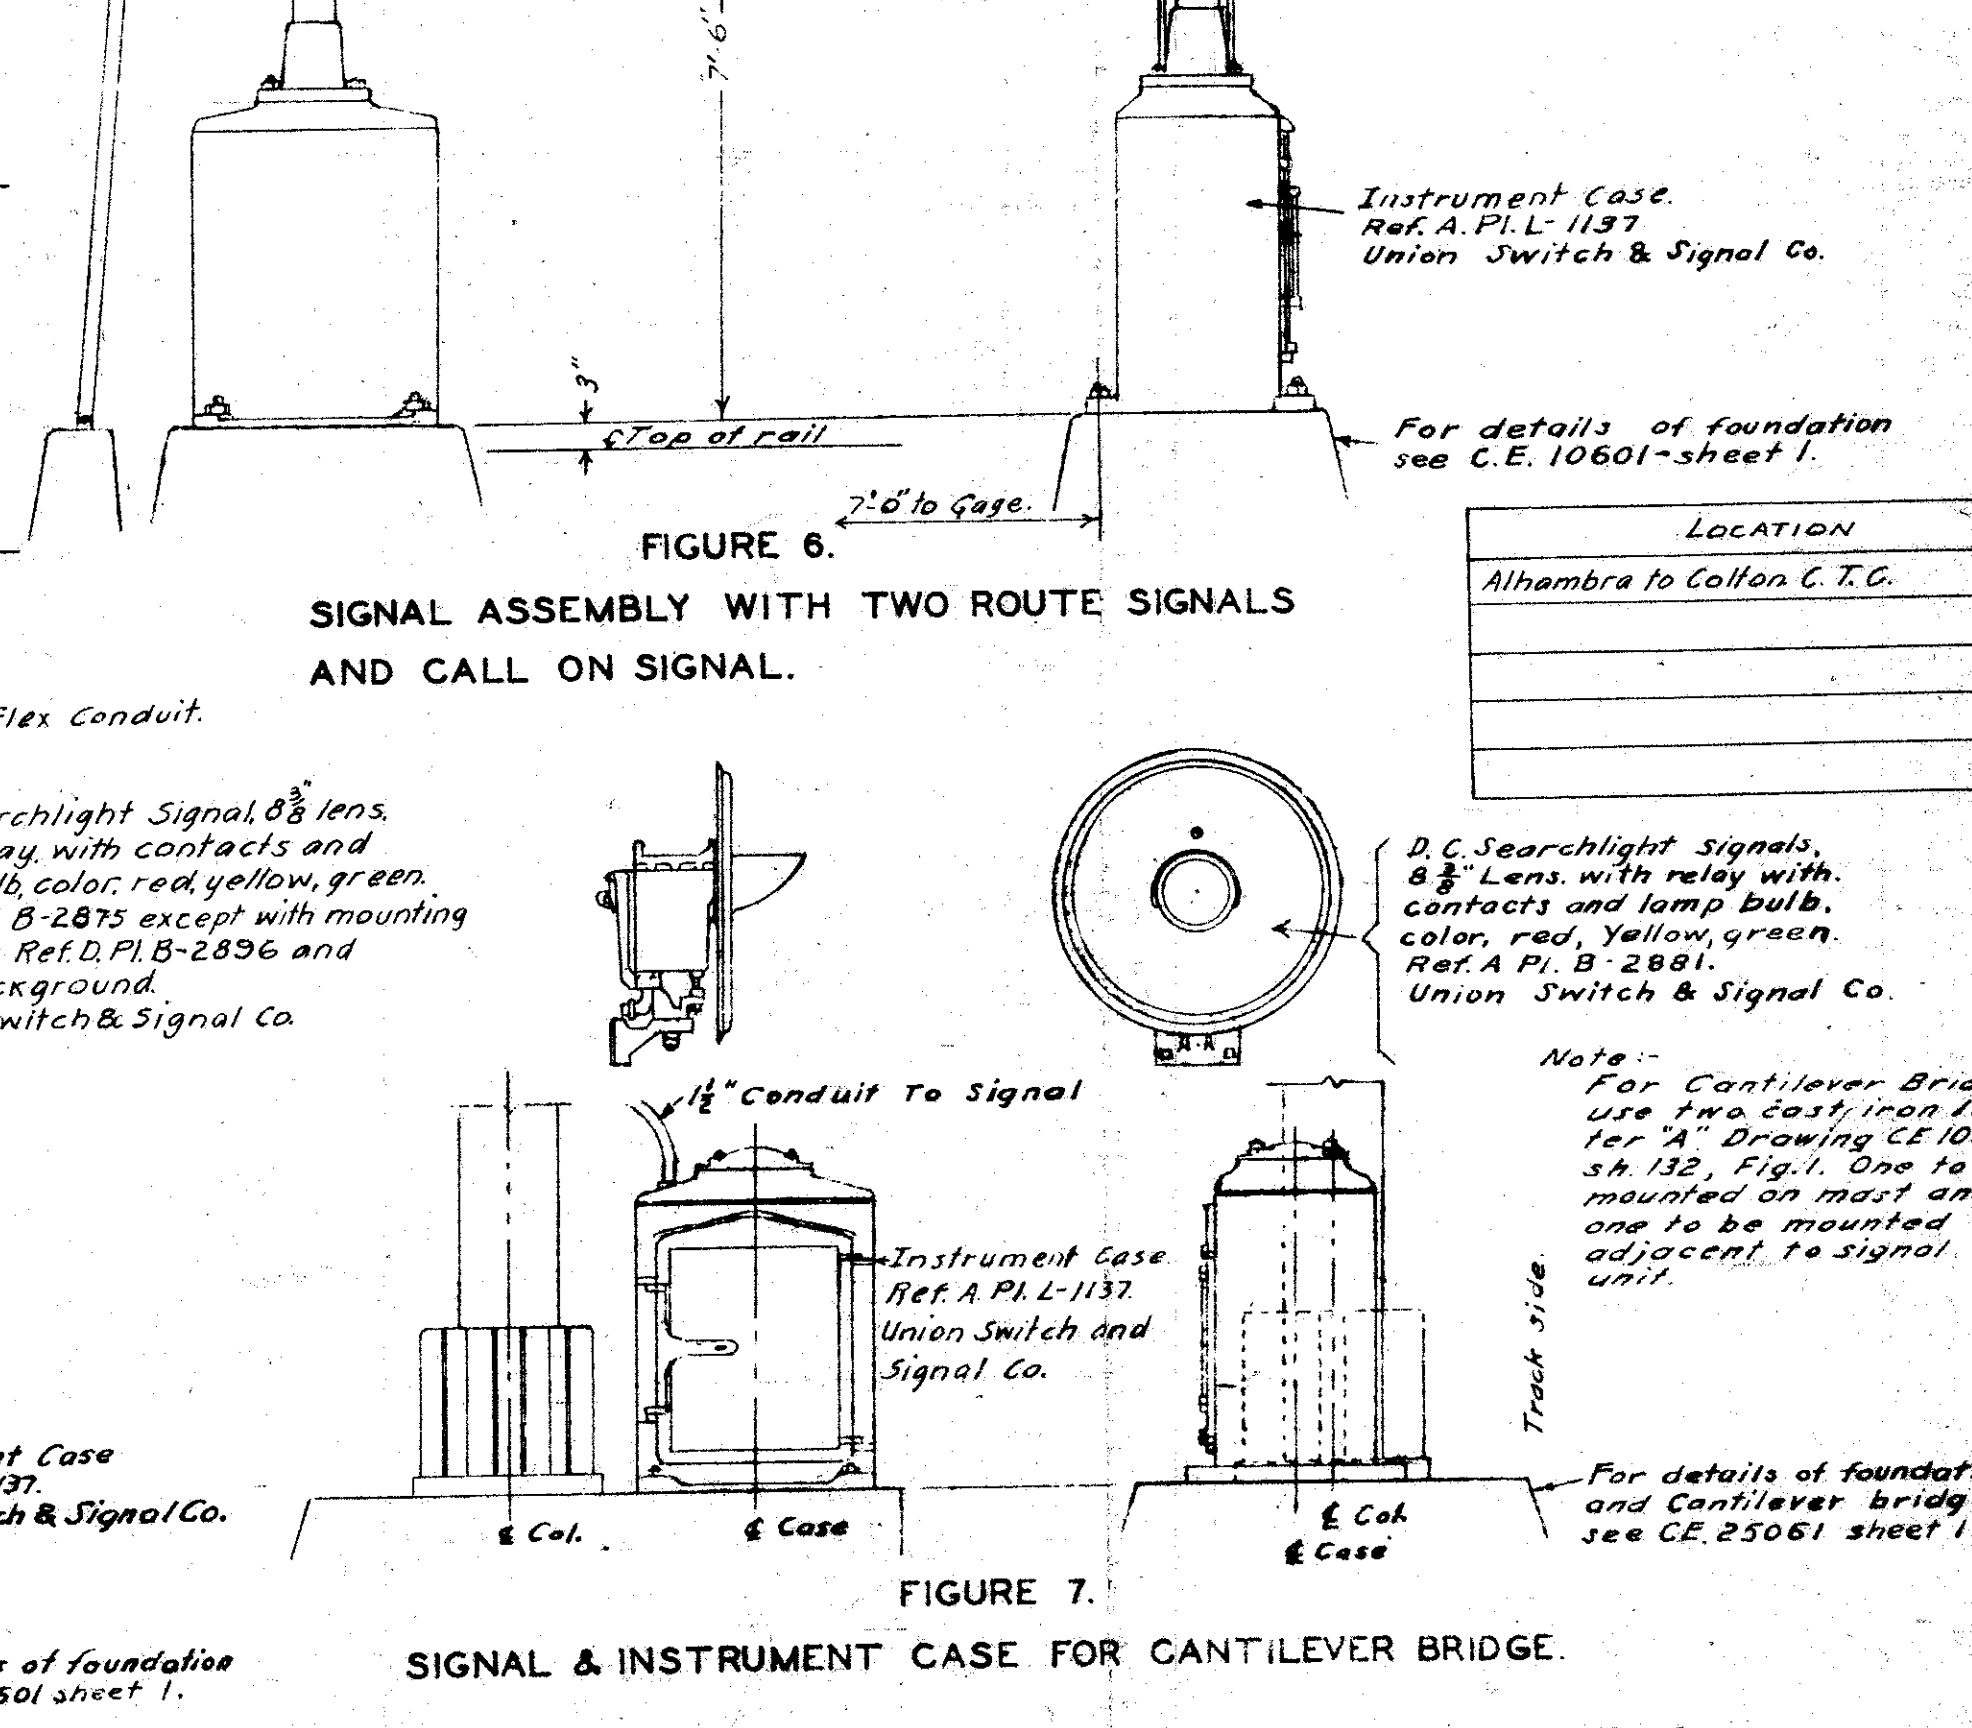 7'-6"
Instrument Case.
Ref. A. Pl. L-1137
Union Switch & Signal Co.
3"
℄ Top of rail
For details of foundation
see C.E. 10601-sheet 1.
7'-0" to Gage.
FIGURE 6.
SIGNAL ASSEMBLY WITH TWO ROUTE SIGNALS
AND CALL ON SIGNAL.
LOCATION
Alhambra to Colton C.T.C.
Flex Conduit.
rchlight Signal, 8 3/8" lens,
ay, with contacts and
lb, color, red, yellow, green.
B-2875 except with mounting
Ref. D. Pl. B-2896 and
ckground.
witch & Signal Co.
D.C. Searchlight Signals,
8 3/8" Lens. with relay with.
contacts and lamp bulb.
color, red, Yellow, green.
Ref. A Pl. B-2881.
Union Switch & Signal Co.
Note:-
For Cantilever Brid
use two cast iron
ter "A" Drawing CE 10
sh. 132, Fig. 1. One to
mounted on mast an
one to be mounted
adjacent to signal
unit.
1 1/2" Conduit To Signal
Instrument Case
Ref. A. Pl. L-1137.
Union Switch and
Signal Co.
Track side.
nt Case
137.
ch & Signal Co.
℄ Col.
℄ Case
℄ Col.
℄ Case
For details of foundat
and Cantilever bridg
see CE. 25061 sheet 1
FIGURE 7.
SIGNAL & INSTRUMENT CASE FOR CANTILEVER BRIDGE.
s of foundation
501 sheet 1.